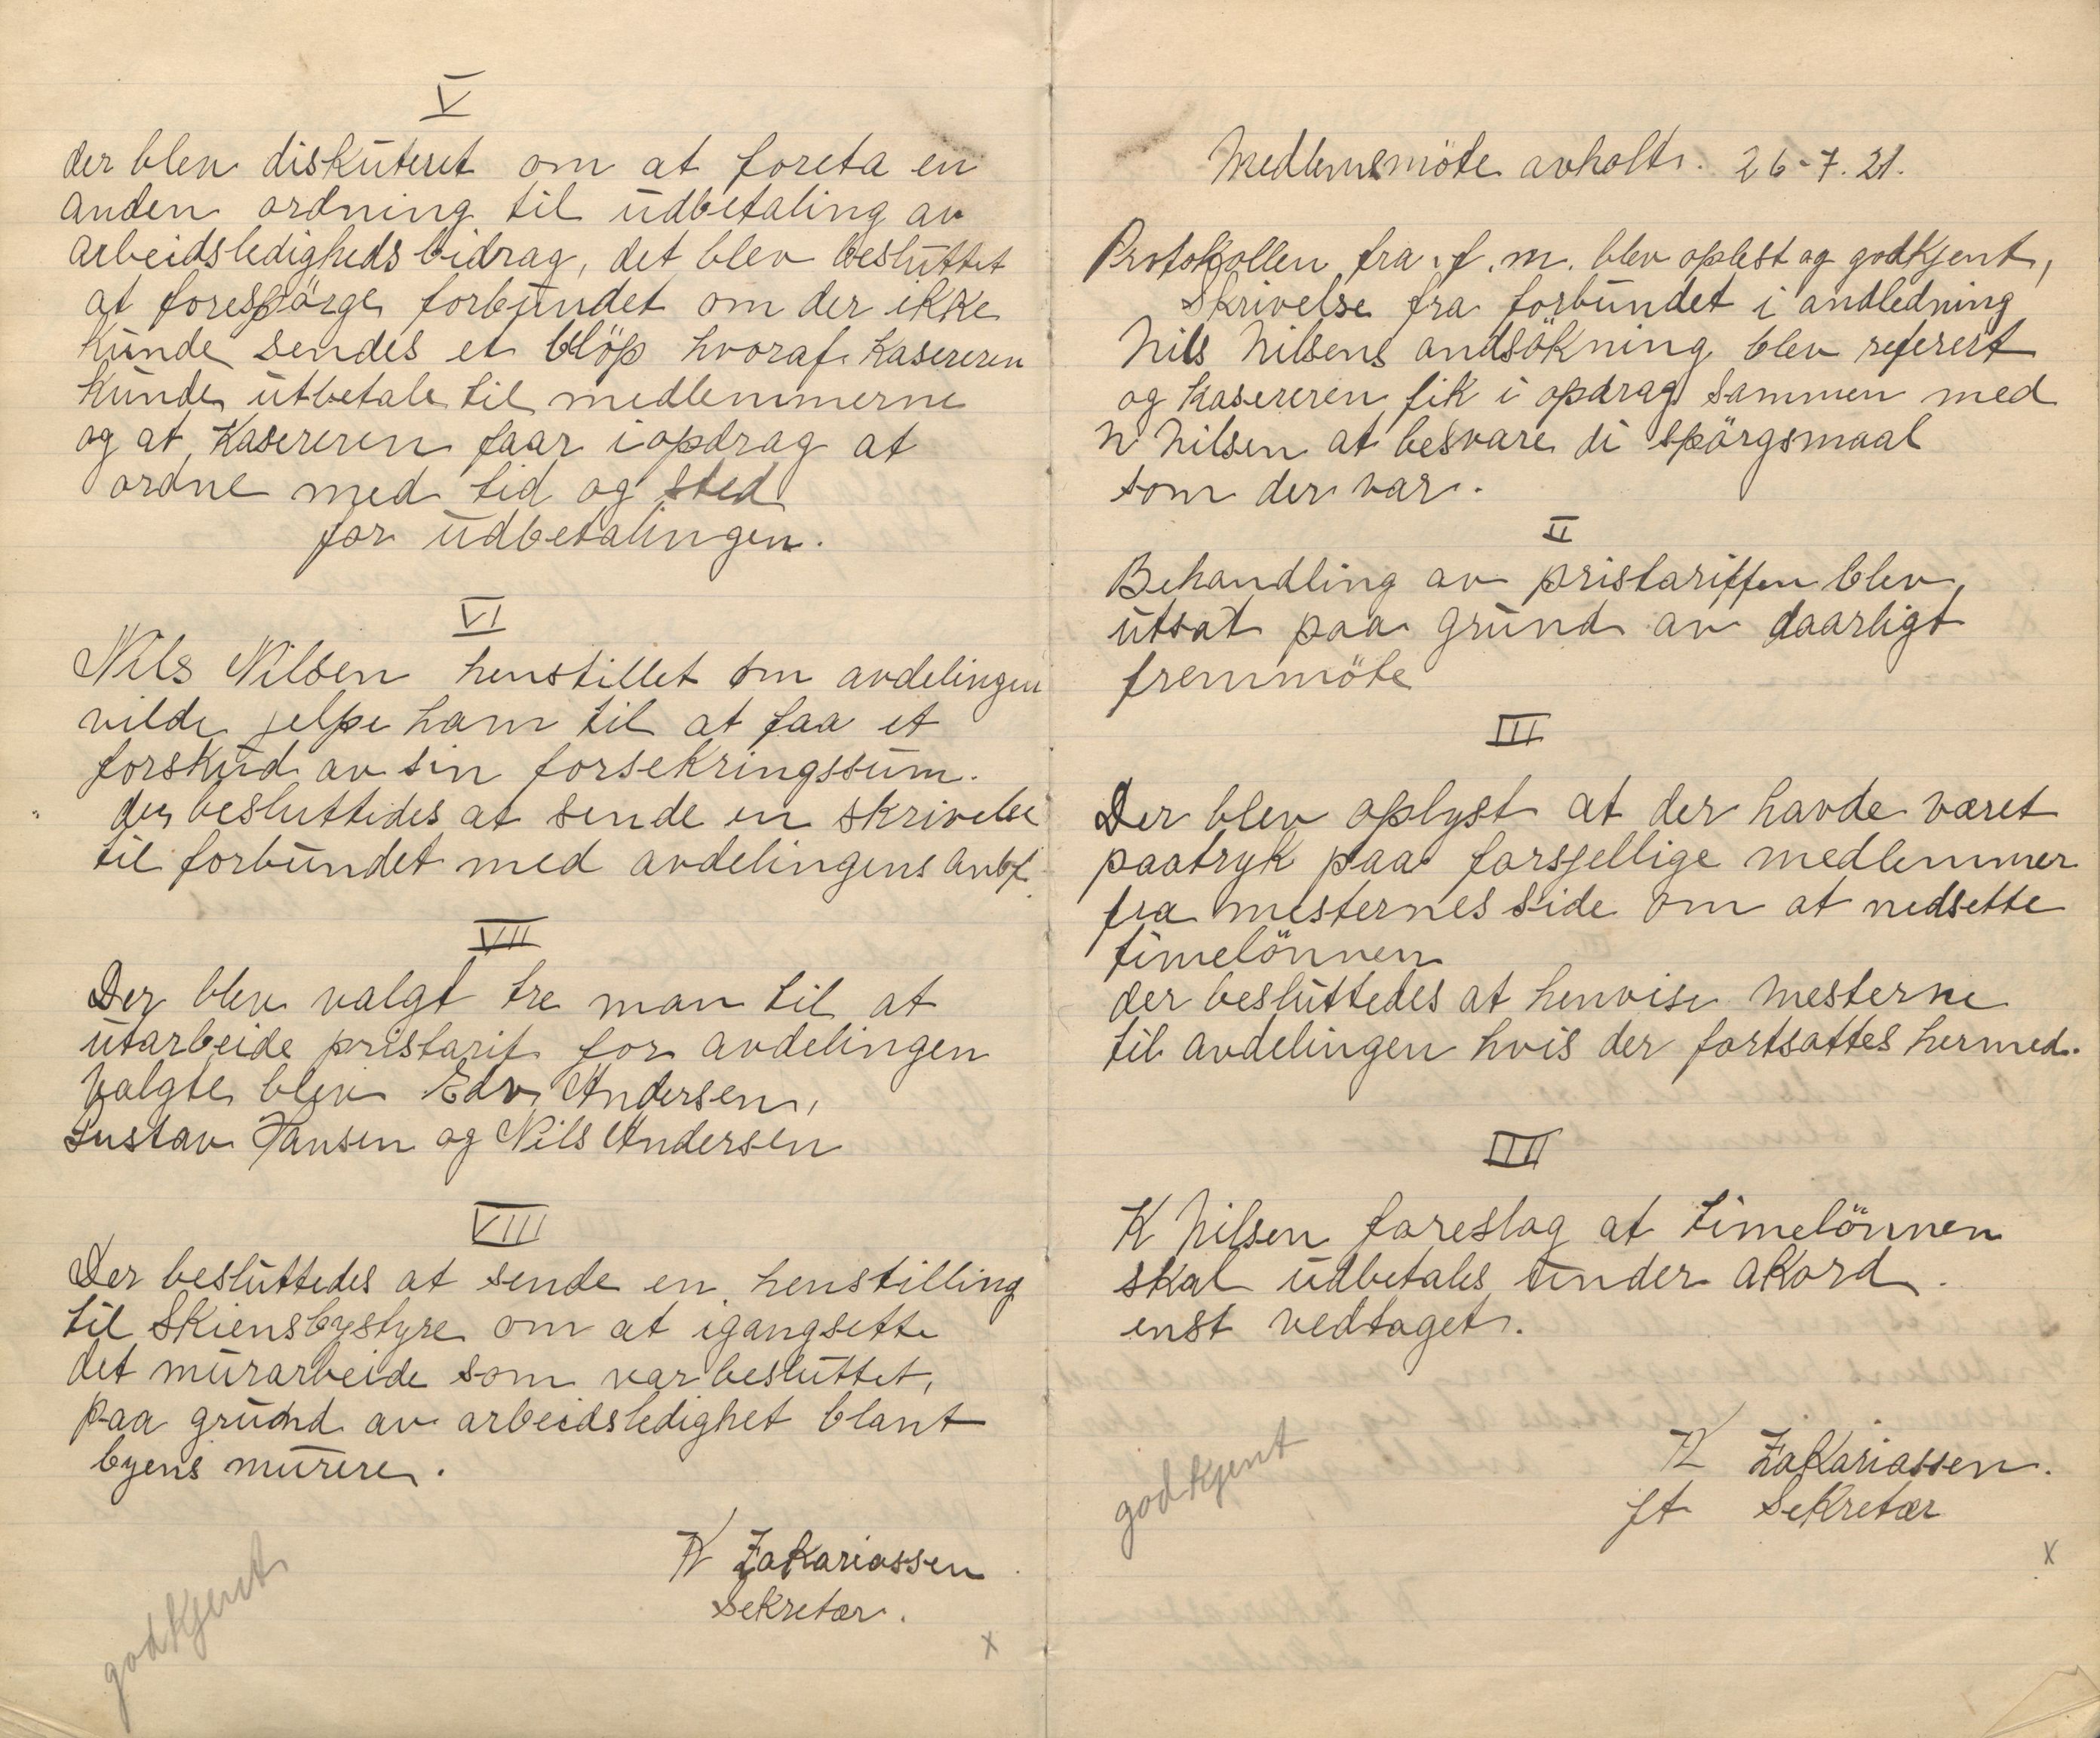 V
der blev diskuteret om at foreta en
anden ordning til udbetaling av
arbeidsledigheds bidrag, det blev besluttet
at forespörge forbundet om der ikke
kunde sendes et blöp hvoraf kasereren
kunde utbetale til medlemmerne
og at kasereren faar i opdrag at
ordne med tid og sted
for udbetalingen.
VI
Nils Nilsen henstillet om avdelingen
vilde jelpe ham til at faa et
forskud av sin forsekringssum.
der besluttedes at sende en skrivelse
til forbundet med avdelingens anbf.
VII
Der blev valgt tre man til at
utarbeide pristarif for avdelingen
Valgte blev Edv. Andersen,
Gustav Hansen og Nils Andersen
VIII
Der besluttedes at sende en henstilling
til Skiensbystyre om at igangsette
det murarbeide som var besluttet,
paa grund av arbeidsledighet blant
byens murere.
K Zakariassen
Sekretær.
godkjent
x
Medlemsmöte avholdt. 26-7.21.
Protokollen fra f.m. blev oplest og godkjent,
Skrivelse fra forbundet i andledning
Nils Nilsens andsökning blev referert
og kasereren fik i opdrag sammen med
N Nilsen at besvare di spörgsmaal
som der var.
II
Behandling av pristariffen blev
utsat paa grund av daarligt
fremmöte
III
Der blev oplyst at der havde været
paatryk paa forsjellige medlemmer
fra mesternes side om at nedsette
timelönnen
der besluttedes at henvise mesterne
til avdelingen hvis der fortsattes hermed.
IIII
K Nilsen foreslog at timelönnen
skal udbetales under akord.
enst vedtaget.
K Zakariassen.
ft Sekretær
godkjent
x